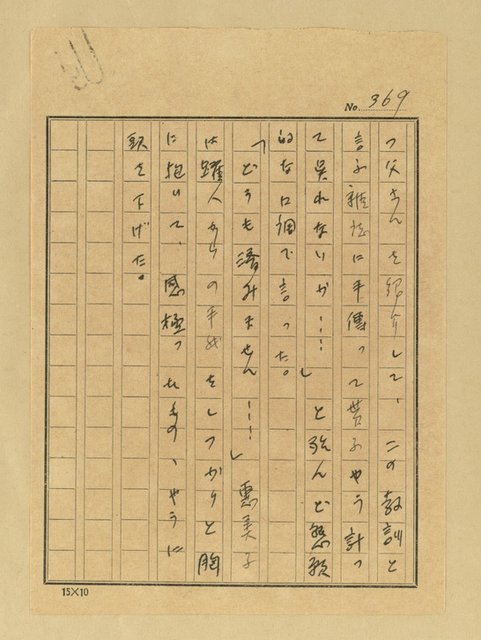 No. 369
つ父さんを紹介して、この教訓と
言ふ雑誌に手傳って貰ふやう計っ
て呉れないか……」と殆んど懇願
的な口調で言った。
「どうも済みません……」恵美子
は躍人からの手紙をしつかりと胸
に抱いて、感極つたものゝやうに
頭を下げた。
15×10